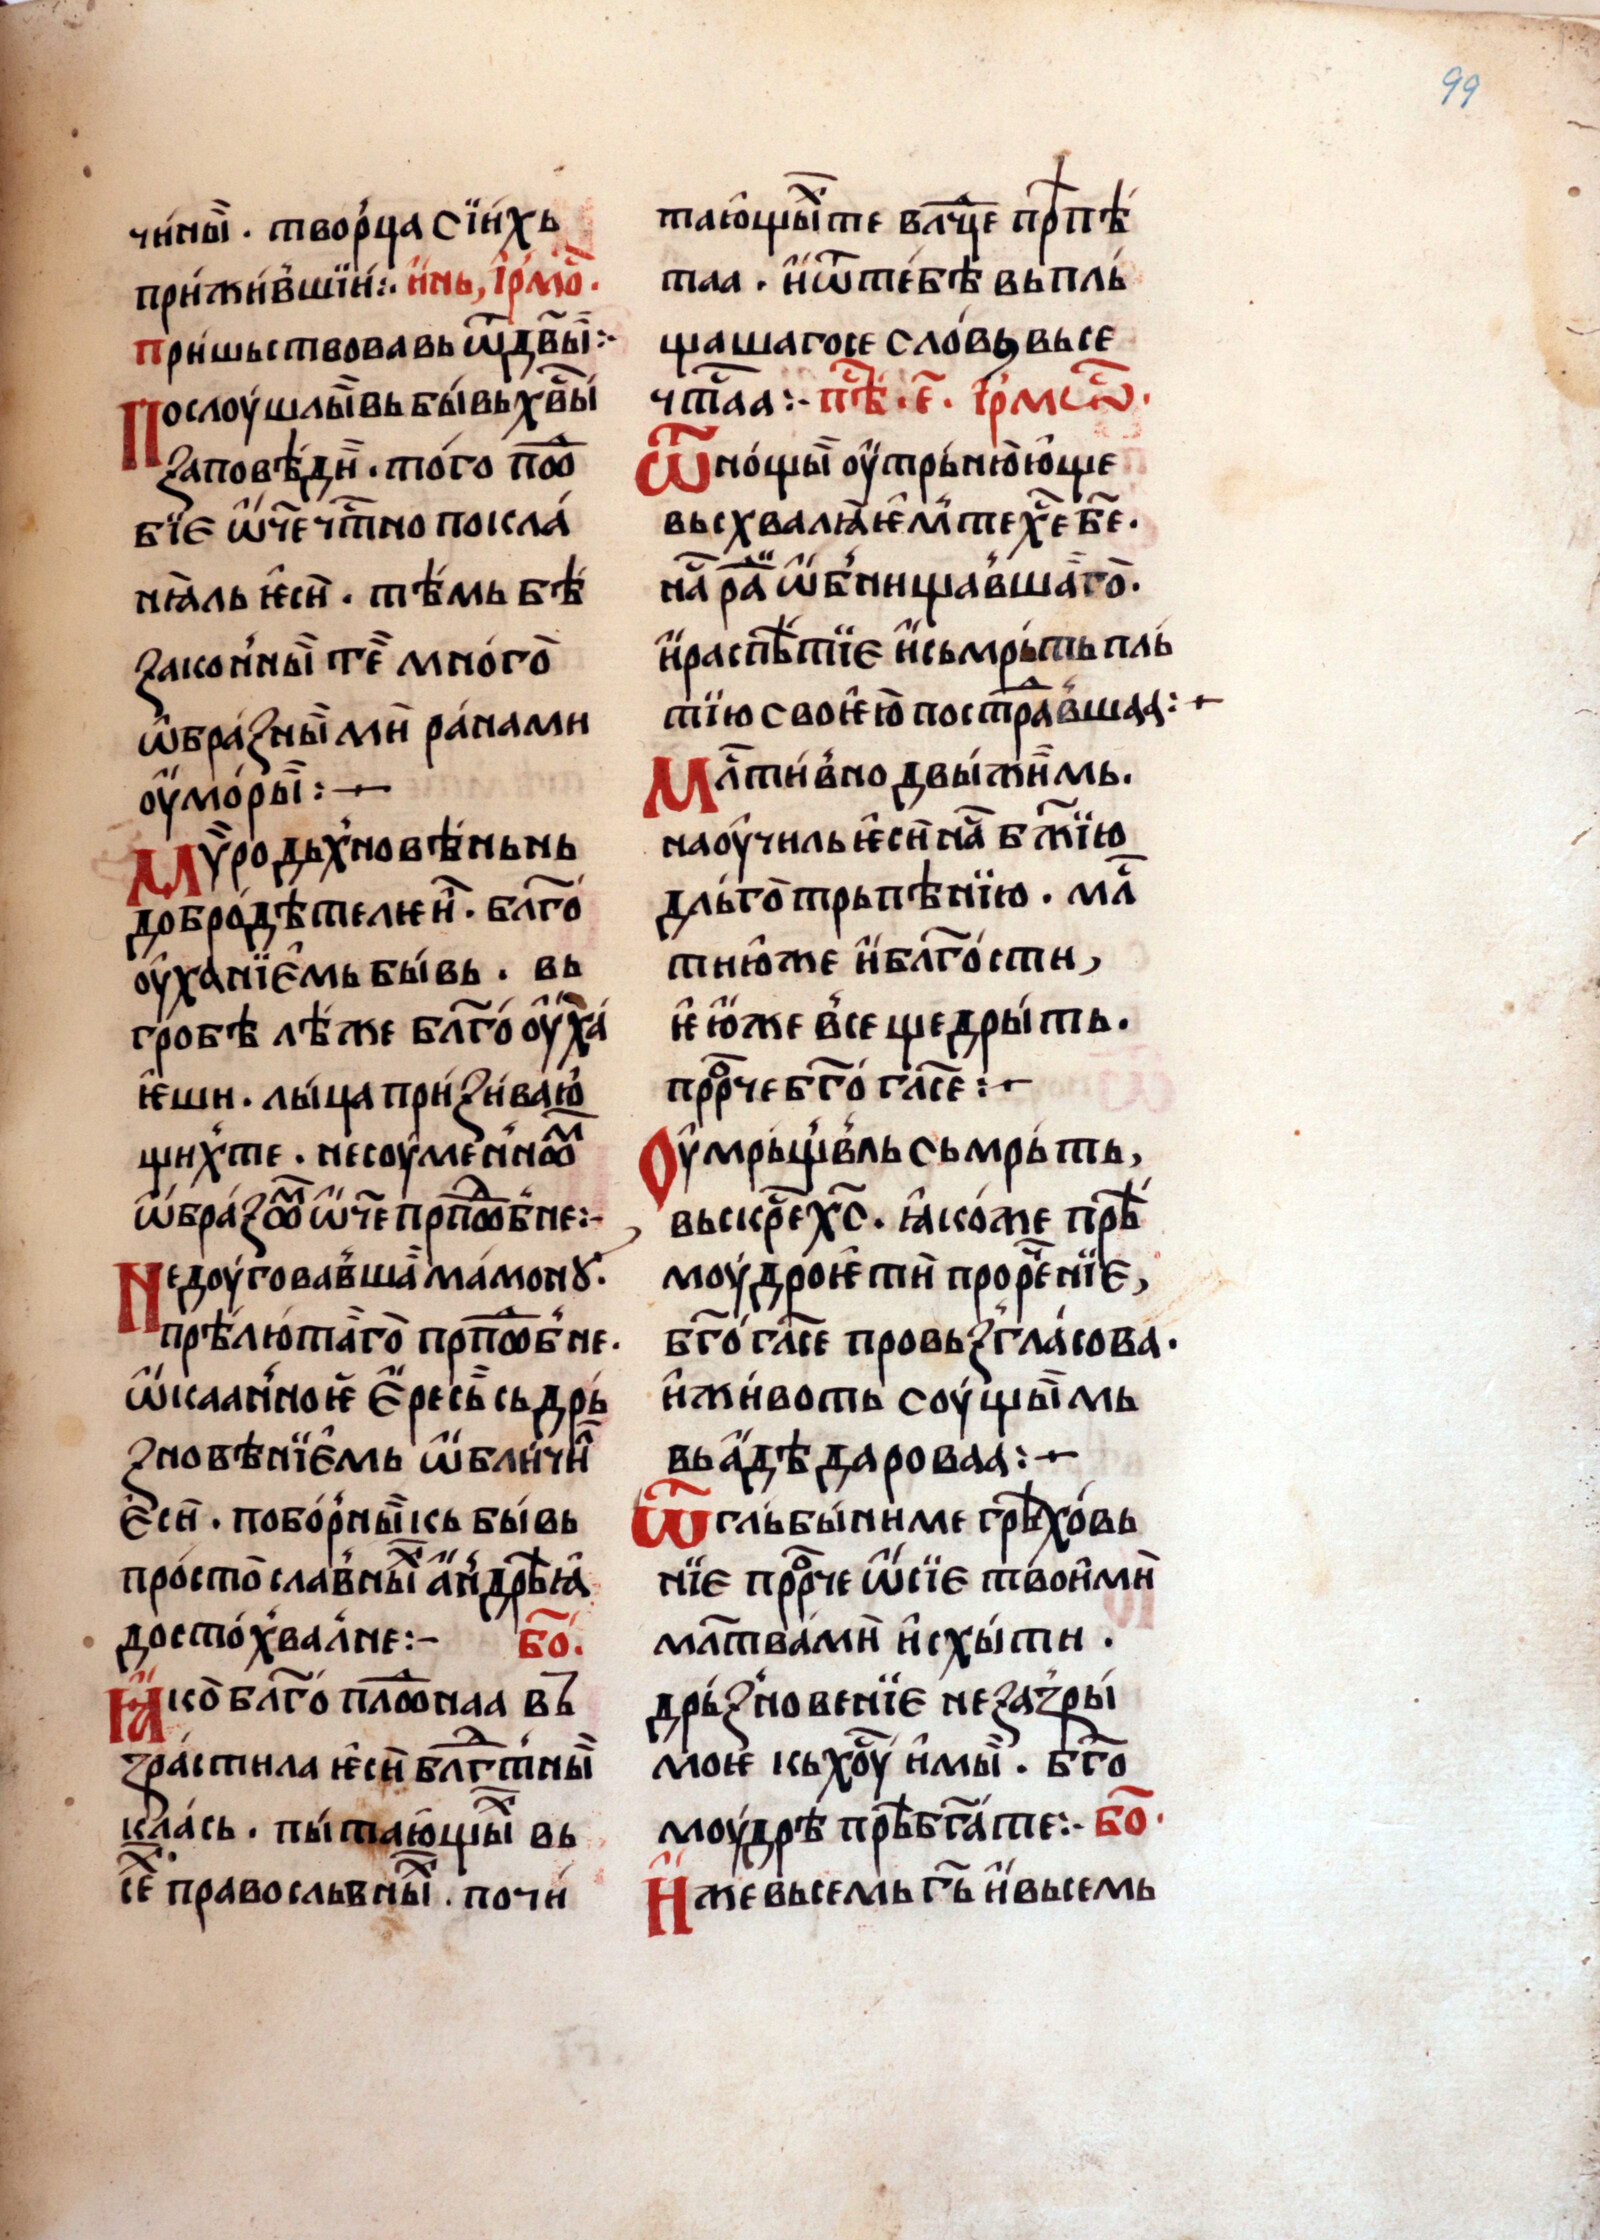 99
чи́ны̏ · твор́ца си́ихь
при́жи́вшїи:· и҆нь, і҆рмо̑ ·
при́шьствовавь ѿ дв҃ы̏:·
Послоу́шлы̏вь бы́вь хв҃ы́
заповѣ́ди̏ · то́го поⷣѡ
бїе ѡ҆ч҃е чт҃но поісла́
нꙗ̏ль ѥ҆си̏ · тѣ́мь бѣ́
закон́ны̏ те̏ мно́го̏
ѡ҆бра́зны̏ми̏ ра́нами
оу҆мо́ры̏:·
Му̏ро дьх́новѣ́ньнь
добро́дѣ́телѥи̏ · блг҃о́
оу҆ханїе҆мь бы́вь · вь
гробѣ лѣ́же блг҃о́ оу҆ха́
ѥ҆ши · лы́ца при́зи́ваю҆
щих́те · несоу҆мен́нѡⷨ
ѡ҆бра́зѡⷨ ѡ҆ч҃е прпⷣѡбне:·
Недоу́говав́ша̏ ма́монꙋ ·
прѣ́лю́та̏го̏ прпⷣѡбне ·
ѡ҆каан́ноѥ̏ е҆ресь̏ сь дрь́
зновѣ́нїе҆мь ѡ҆бли́чи̏
е҆си̏ · побо́рны̏ісь бы́вь
про́сто̏славны̏ⷯ а҆н́дрѣ́ꙗ҆
досто́х́вал́не:· бо҃ ·
Ꙗ҆ко̏ блг҃о́ плⷣѡнаа вь
зра́стила ѥ҆си̏ блгⷣтны̏
кла́сь · пы́таю҆щы̏ⷯ вь
сеⷯ православны̏ⷯ · почи́
таю҆щы̏ⷯте влⷣч҃це прⷭ҇пѣ́
таа · и҆ ѿ те́бѣ вьпль́
щашагосе сло́вь, вьсе
чт҃аа:· пѣⷭ҇ · е҃ · і҆рмѡⷭ҇ ·
Ѿ но́щы̏ оу҆трь́ню̏ю҆ще
вьсхвалꙗ̏ѥ҆м́те хе҃ б҃е ·
на̑ раⷣ ѡ҆б́нищав́ша̏го̏ ·
и҆распѣ́тїе и҆сьмрь́ть пль́
тїю своѥ҆ю̏ постраⷣвшаа:·
Млⷭ҇ти́вно двы́жи̏мь ·
наоу҆чиль ѥ҆си̏ на̑ бж҃їю
дль́го̏трьпѣ́нїю · млⷭ҇
тию҆же и҆ блг҃о́сти,
ѥ҆ю҆же в́се щедры́ть ·
прⷪ҇рче бг҃о́ гл҃се:·
Оу҆мрь́щв́ль сьмрь́ть,
вьскрⷭ҇е хс҃ · ꙗ҆ко́же прѣⷣ
моу́дроѥ ти̏ проре́нїе,
бг҃о́ гл҃се провьзгла́сова ·
и҆жи́воть соу́щы̏мь
вь а҆дѣ дарова́а:·
Ѿ гль́бы́ниме грѣⷯо́вь
нїе прⷪ҇рче ѡ҆сїе твои҆ми̏
млт҃ва́ми̏ и҆схы́ти ·
дрь́зновенїе незаз́ры́
моѥ кь хо҃у́ и҆мы̏ · бг҃о̏
моу́дрѣ прѣбга́те:· бо҃ ·
И҆же вьсемь гь҃ и҆ вьсемь